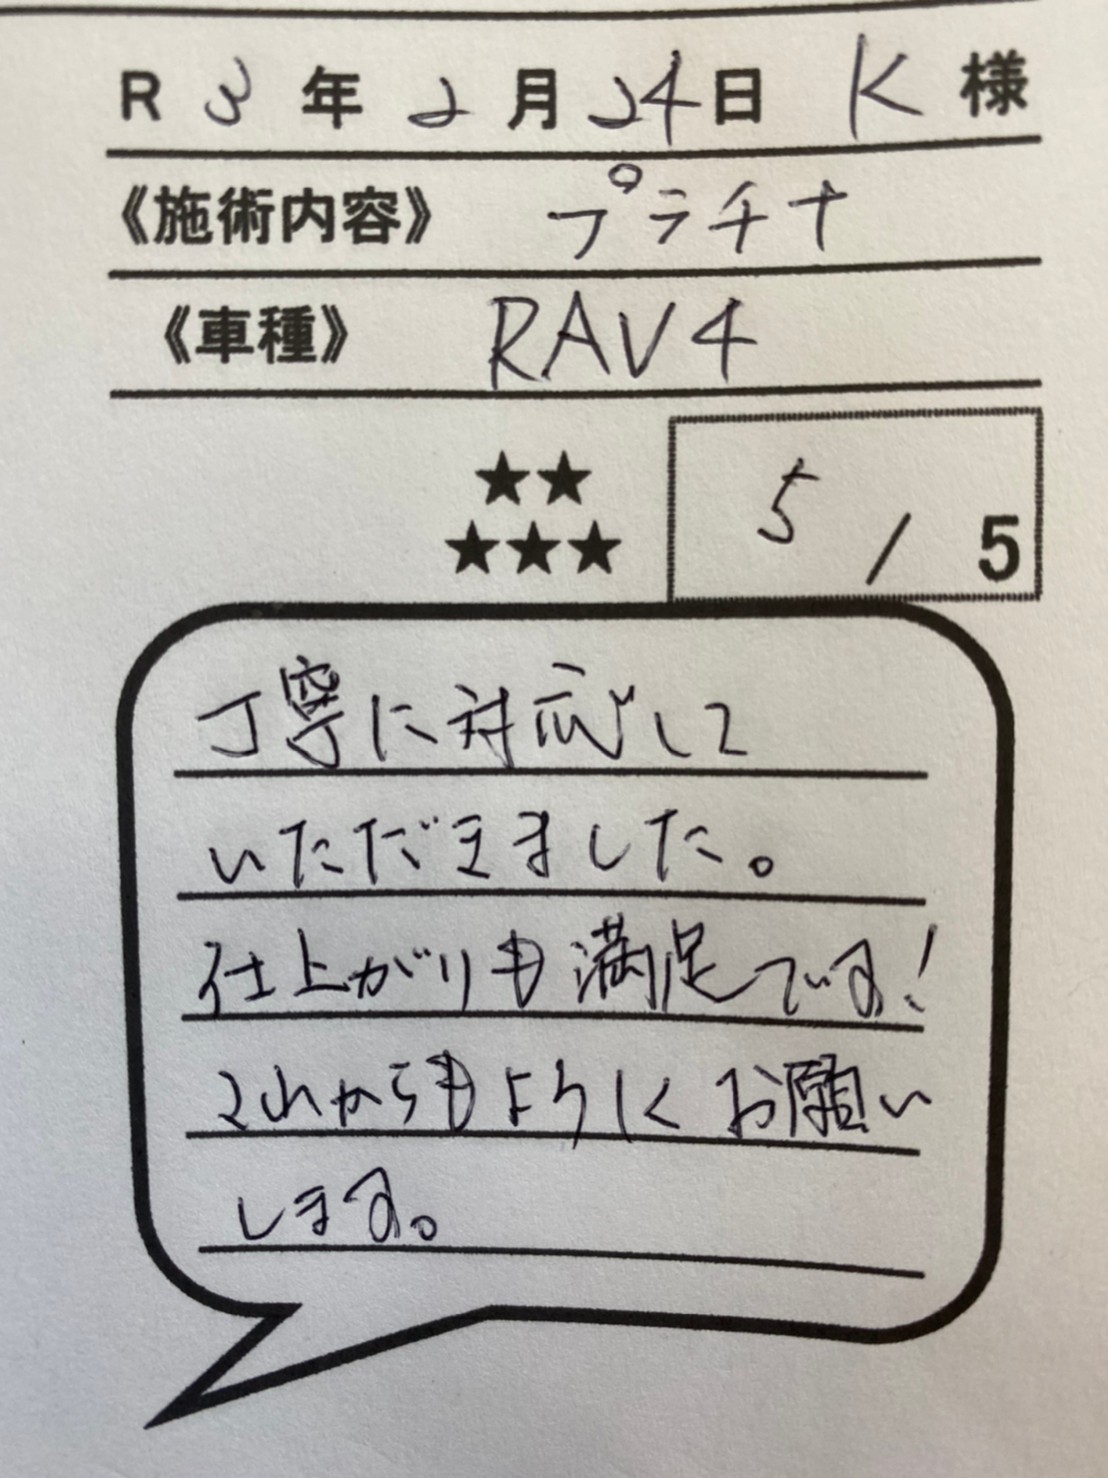 R 3 年 2 月 24 日 K 様
《施術内容》 プラチナ
《車種》 RAV4
★★
★★★
5 / 5
丁寧に対応して
いただきました。
仕上がりも満足です!
これからもよろしくお願い
します。